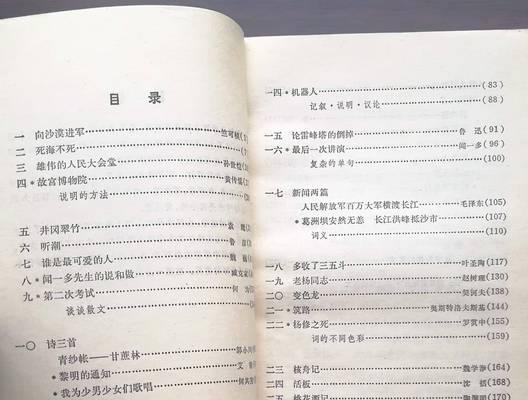 目 录
一 向沙漠进军 竺可桢(1
二 死海不死
三 雄伟的人民大会堂 孙世恺(
四 *故宫博物院 黄传惕(
说明的方法
五 井冈翠竹 袁鹰(
六 听潮 鲁彦(
七 谁是最可爱的人 魏巍(
八 *闻一多先生的说和做 臧克家(
九 *第二次考试 何为(
谈谈散文
一〇 诗三首
青纱帐——甘蔗林 郭小川
*黎明的通知 艾青
*我为少男少女们歌唱 何其芳
一四 *机器人 (83)
记叙·说明·议论 (88)
一五 论雷峰塔的倒掉 鲁 迅(91)
一六 *最后一次讲演 闻一多(96)
复杂的单句 (100)
一七 新闻两篇
人民解放军百万大军横渡长江 毛泽东(105)
*葛洲坝安然无恙 长江洪峰抵沙市 (107)
词义 (110)
一八 多收了三五斗 叶圣陶(117)
一九 *老杨同志 赵树理(131)
二〇 变色龙 契诃夫(
二一 *筑路 奥斯特洛夫斯基(
二二 *杨修之死 罗贯中(
词的不同色彩
二三 核舟记 魏学洢(164)
二四 活板 沈 括(168)
二五 桃花源记 陶渊明(